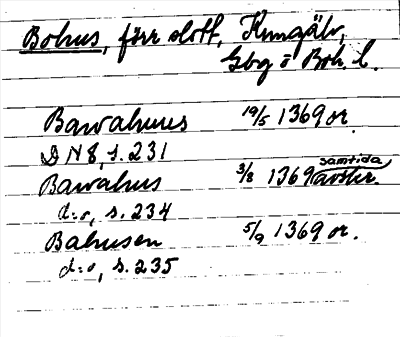 Bohus, förr slott, Kungälv,
Gbg o Boh. l.
Bawahuus 19/5 1369 or.
DN 8, s. 231
Bawahus 3/8 1369 samtida avskr.
d:o, s. 234
Bahusen 5/9 1369 or.
d:o, s. 235